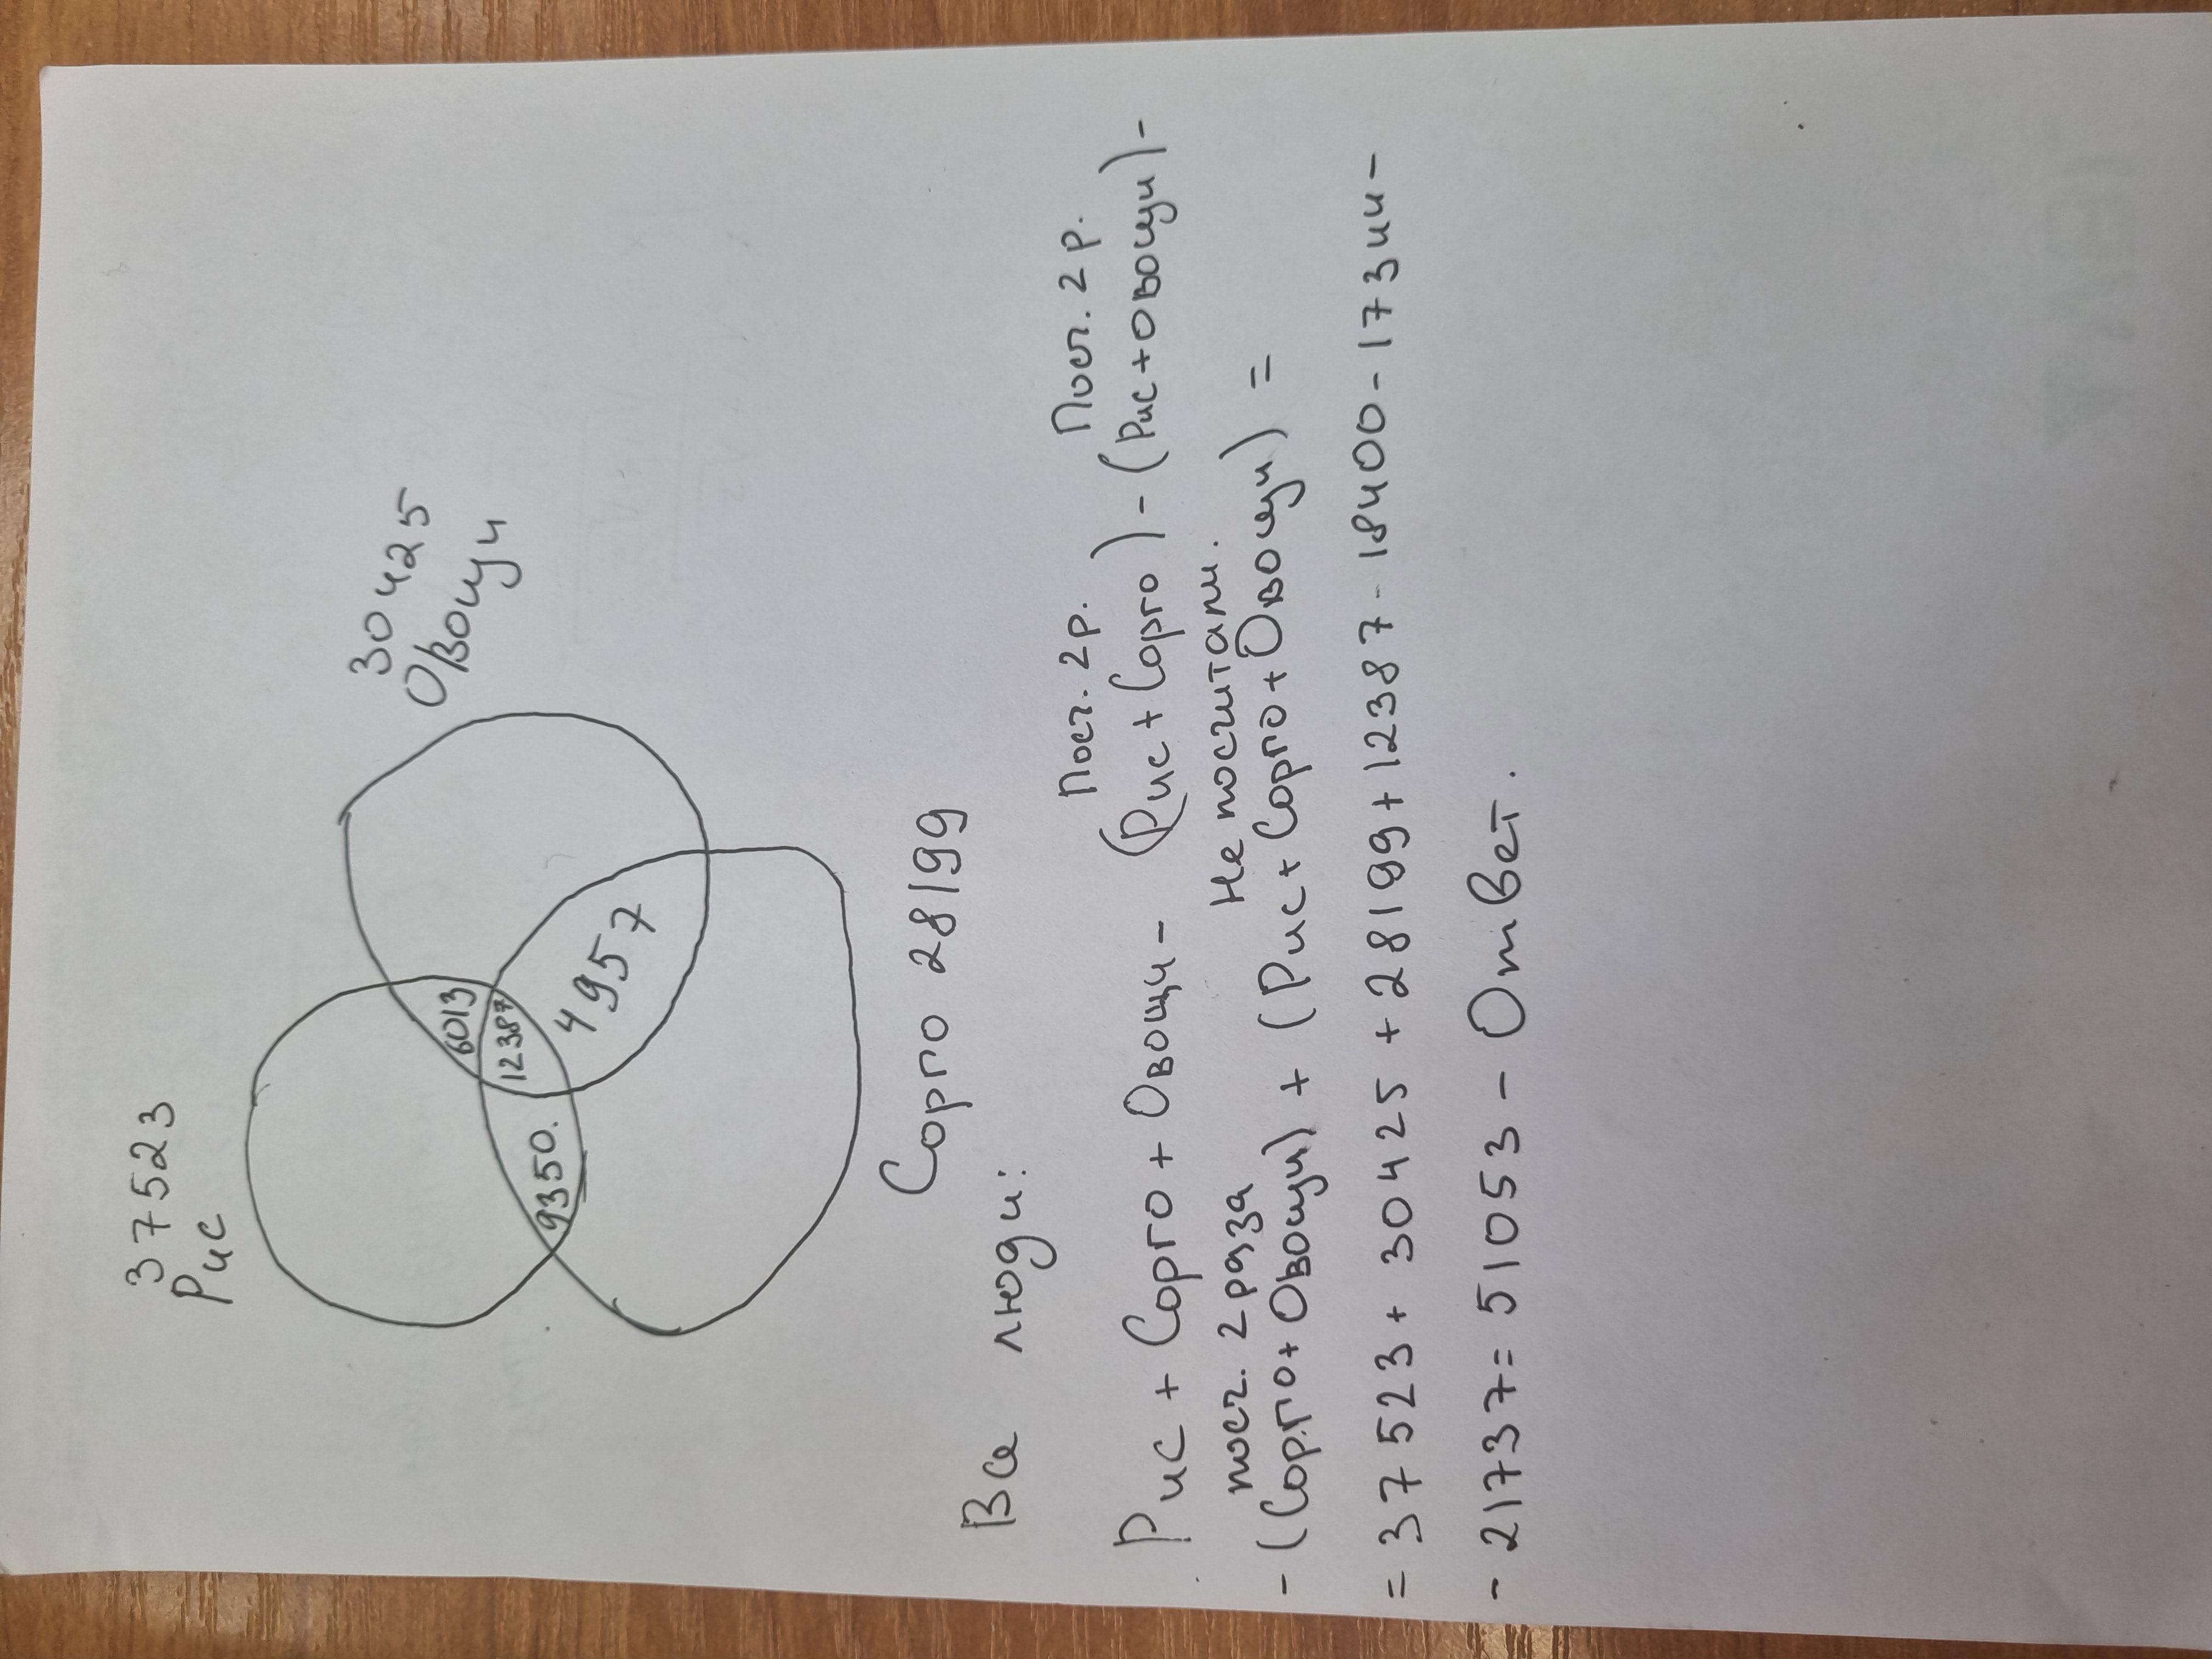 37523
Рис
30425
Овощи
6013
12387
9350.
4957
Сорго 28199
Все люди:
Посч. 2р. Посч. 2р.
Рис + Сорго + Овощи - (Рис + Сорго) - (Рис + Овощи) -
посч. 2 раза Не посчитали.
- (Сорго + Овощи) + (Рис + Сорго + Овощи) =
= 37523 + 30425 + 28199 + 12387 - 18400 - 17344 -
- 21737 = 51053 - Ответ.